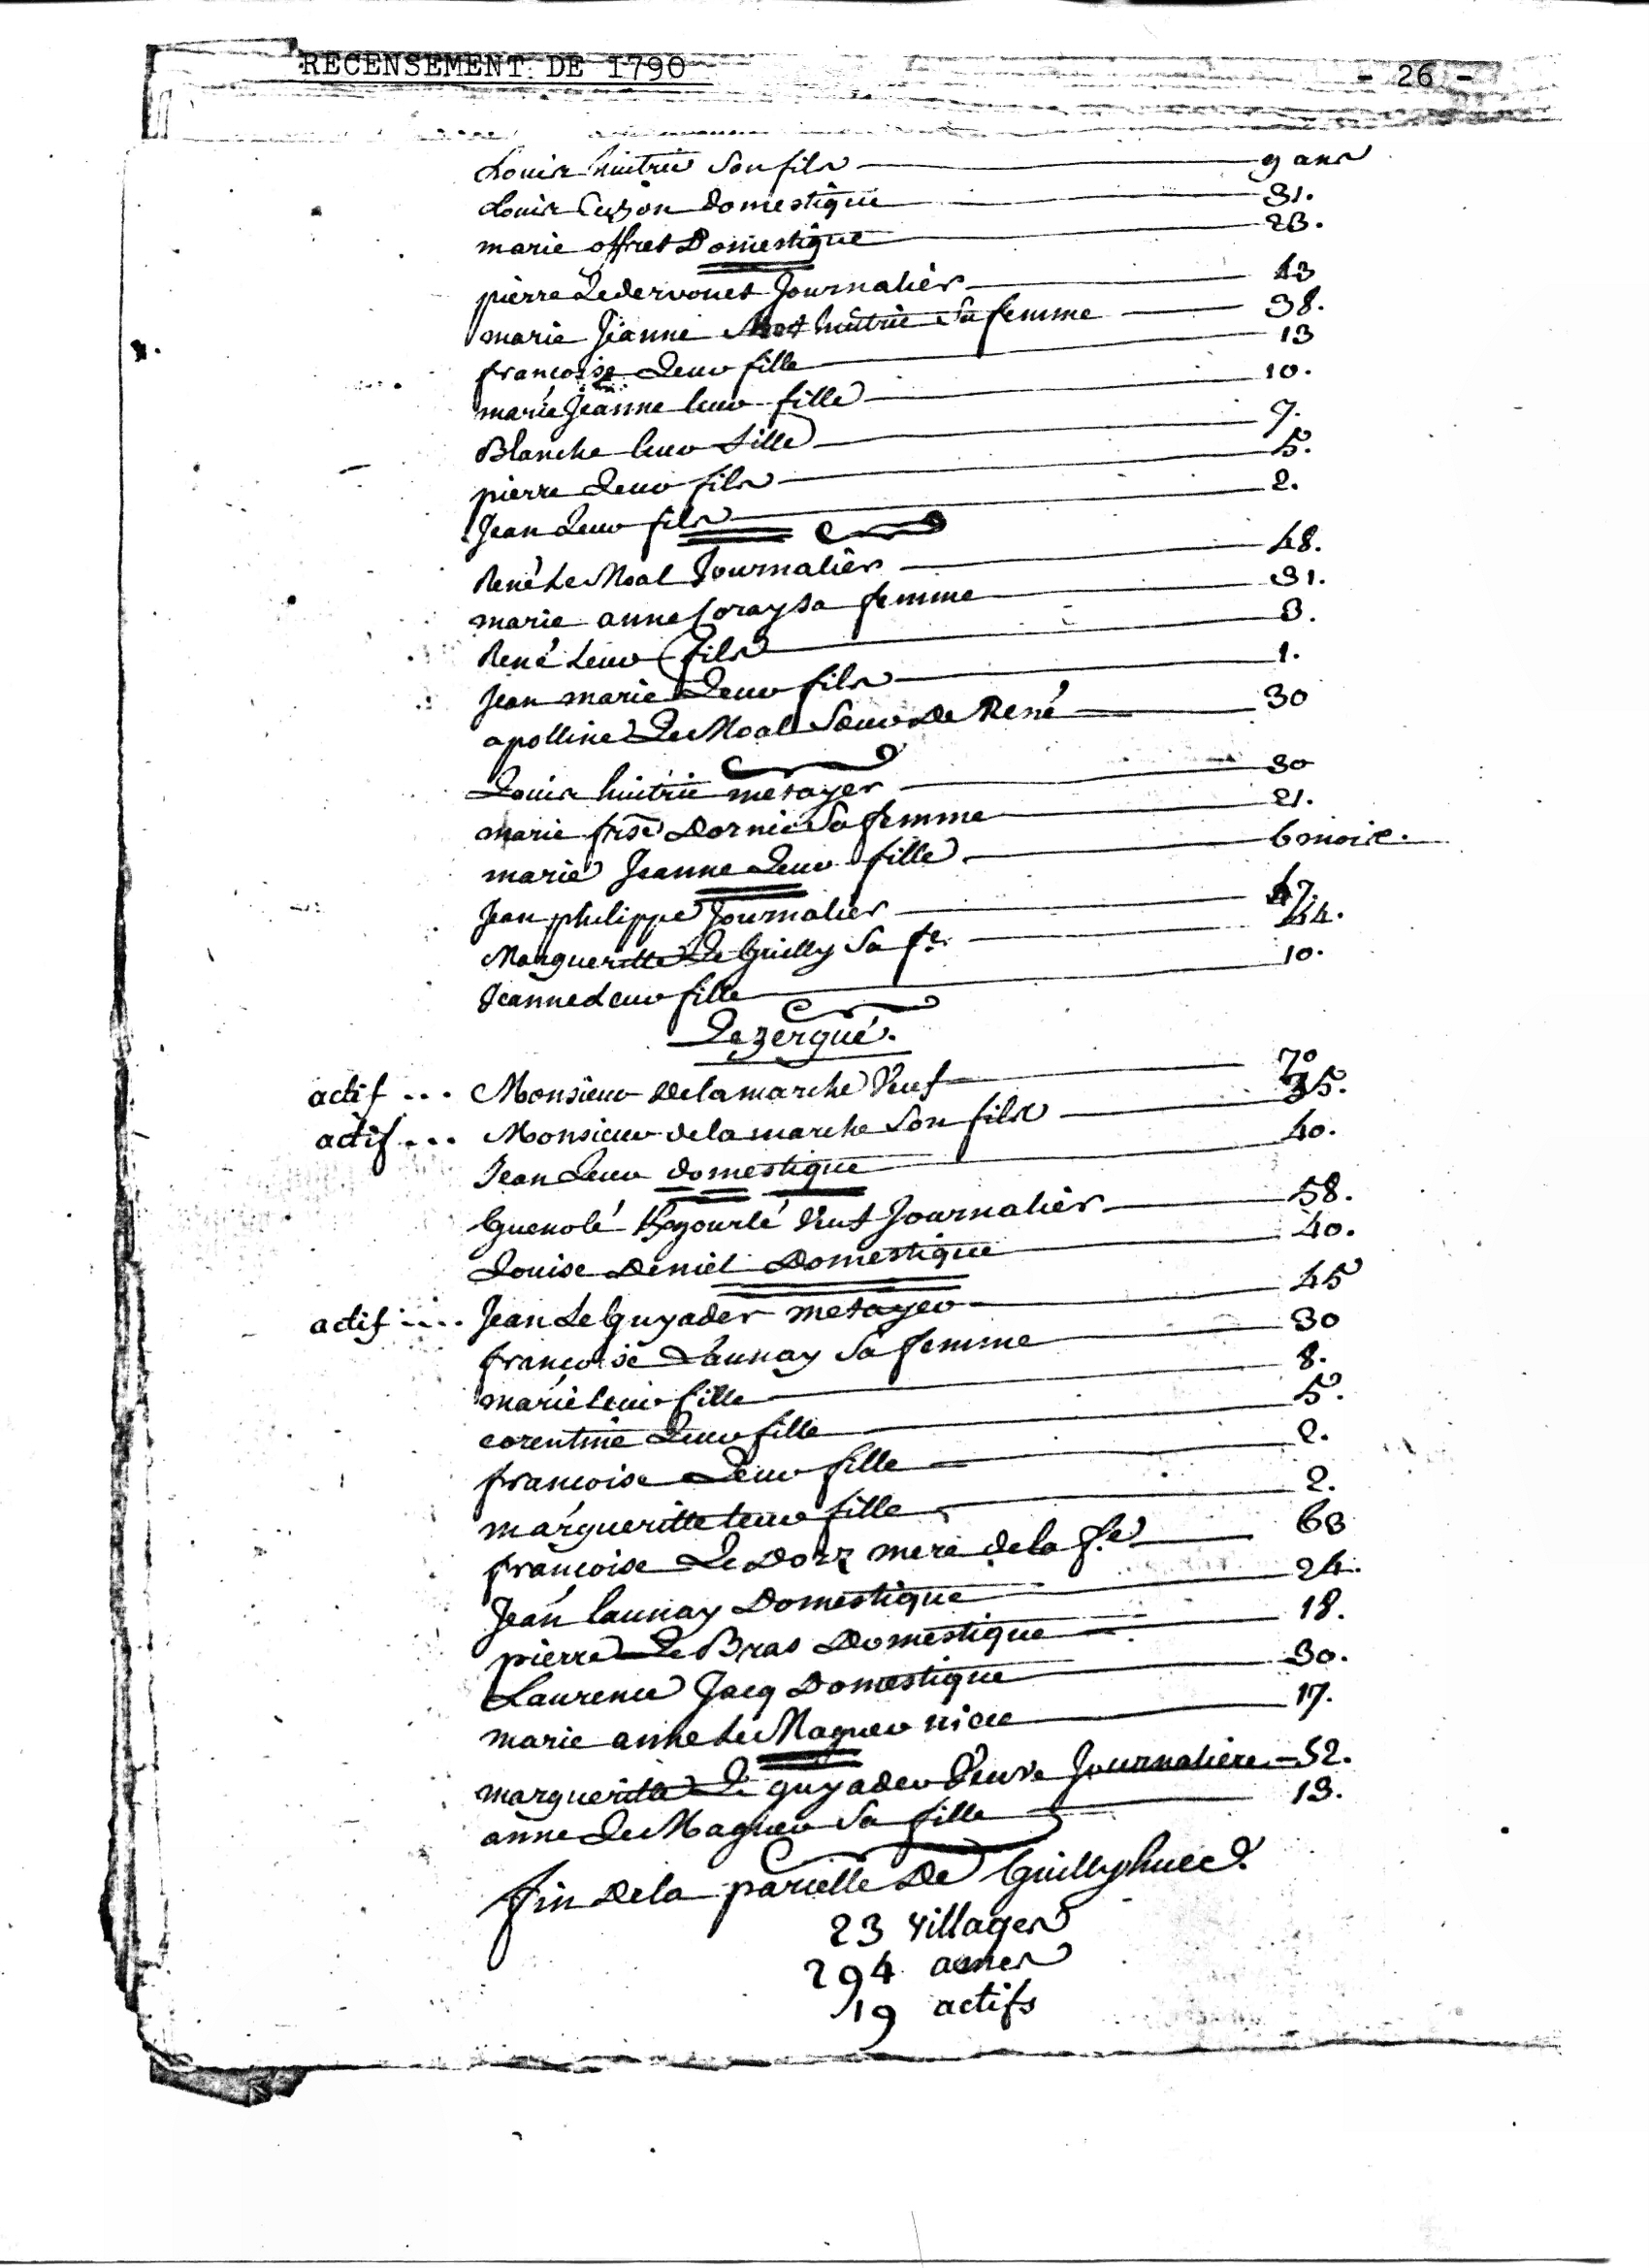 RECENSEMENT DE 1790 - 26 -
Louis huitric son fils 9 ans
Louis Cuzon Domestique 31.
marie offret Domestique 23.
pierre Ledervouet Journalier 43
marie Jeanne huitric sa femme 38.
françoise Leur fille 13
marie Jeanne leur fille 10.
Blanche leur fille 7.
pierre Leur fils 5.
Jean Leur fils 2.
René Le Moal Journalier 48.
marie anne Coray sa femme 31.
René Leur fils 3.
Jean marie Leur fils 1.
apolline Le Moal Sœur De René 30
Louis huitric metayer 30
marie frse Dornic Sa femme 21.
marie Jeanne Leur fille 6 mois.
Jean philippe Journalier 47.
Margueritte Le Guilly Sa fe. 44.
Jeanne Leur fille 10.
Lezergué.
actif ... Monsieur Delamarche Veuf 70
actif ... Monsieur delamarche Son fils 35.
Jean Leur domestique 40.
Guenolé Kgourlé Veuf Journalier 58.
Louise Deniel Domestique 40.
actif .... Jean Le Guyader metayer 45
françoise Launay Sa femme 30
marie leur fille 8.
corentine Leur fille 5.
françoise Leur fille 2.
margueritte leur fille 2.
françoise Le Dorz mere de la fe 63
Jean Launay Domestique 24.
pierre Le Bras Domestique 18.
Laurence Jacq Domestique 30.
marie anne Le Magueur niece 17.
margueritte Le guyader Veuve Journaliere - 52.
anne Le Magueur Sa fille 13.
fin de la parcelle De Guillyhuec.
23 villages
294 ames
19 actifs